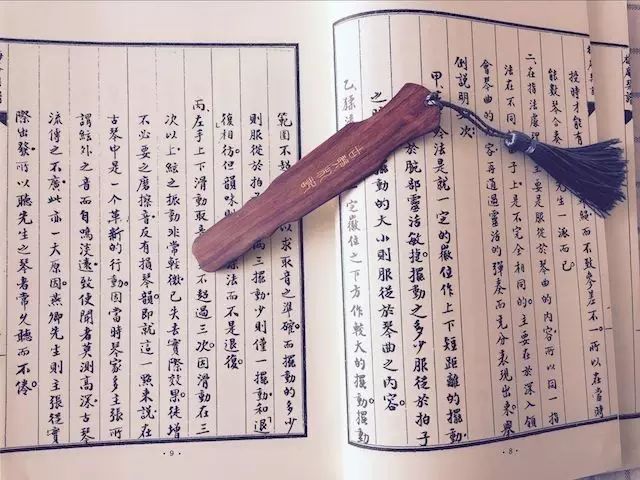 授時才能有歸而不致參差不一。所以在當時
能數琴合奏先生一派而已
二、在指法處理主要是服從於琴曲的內容所以同一指
法在不同子上是不完全相同的主要在於深入領
會琴曲的容再通過靈活的彈奏而充分表現出來。舉
例說明次
甲、法是就一定的徽位作上下短距離的擺動。
於腕部靈活敏捷。擺動之多少服從於拍子
之擺動的大小則服從於琴曲之內容。
乙、猱法一定徽位之下方作較大的擺動。擺動
·8·
範圍不超以求取音之準確。而擺動的多少
則服從於拍兩三擺動，少則僅一擺動和「退
復」相彷但韻味則法而不是退復。
丙、左手上下滑動取音不超過三次。因滑動在三
次以上，絃之振動非常輕微，已失去實際效果。徒增
不必要之磨擦音，反有損琴韻。即就這一點來說，在
古琴中是一個革新的行動。因當時琴家多主張所
謂絃外之音而自鳴淡遠，致使聞者莫測高深。古琴
流傳之不廣，此亦一大原因。燕卿先生則主張從實
際出發。所以聽先生之琴者常久聽而不倦。
·9·